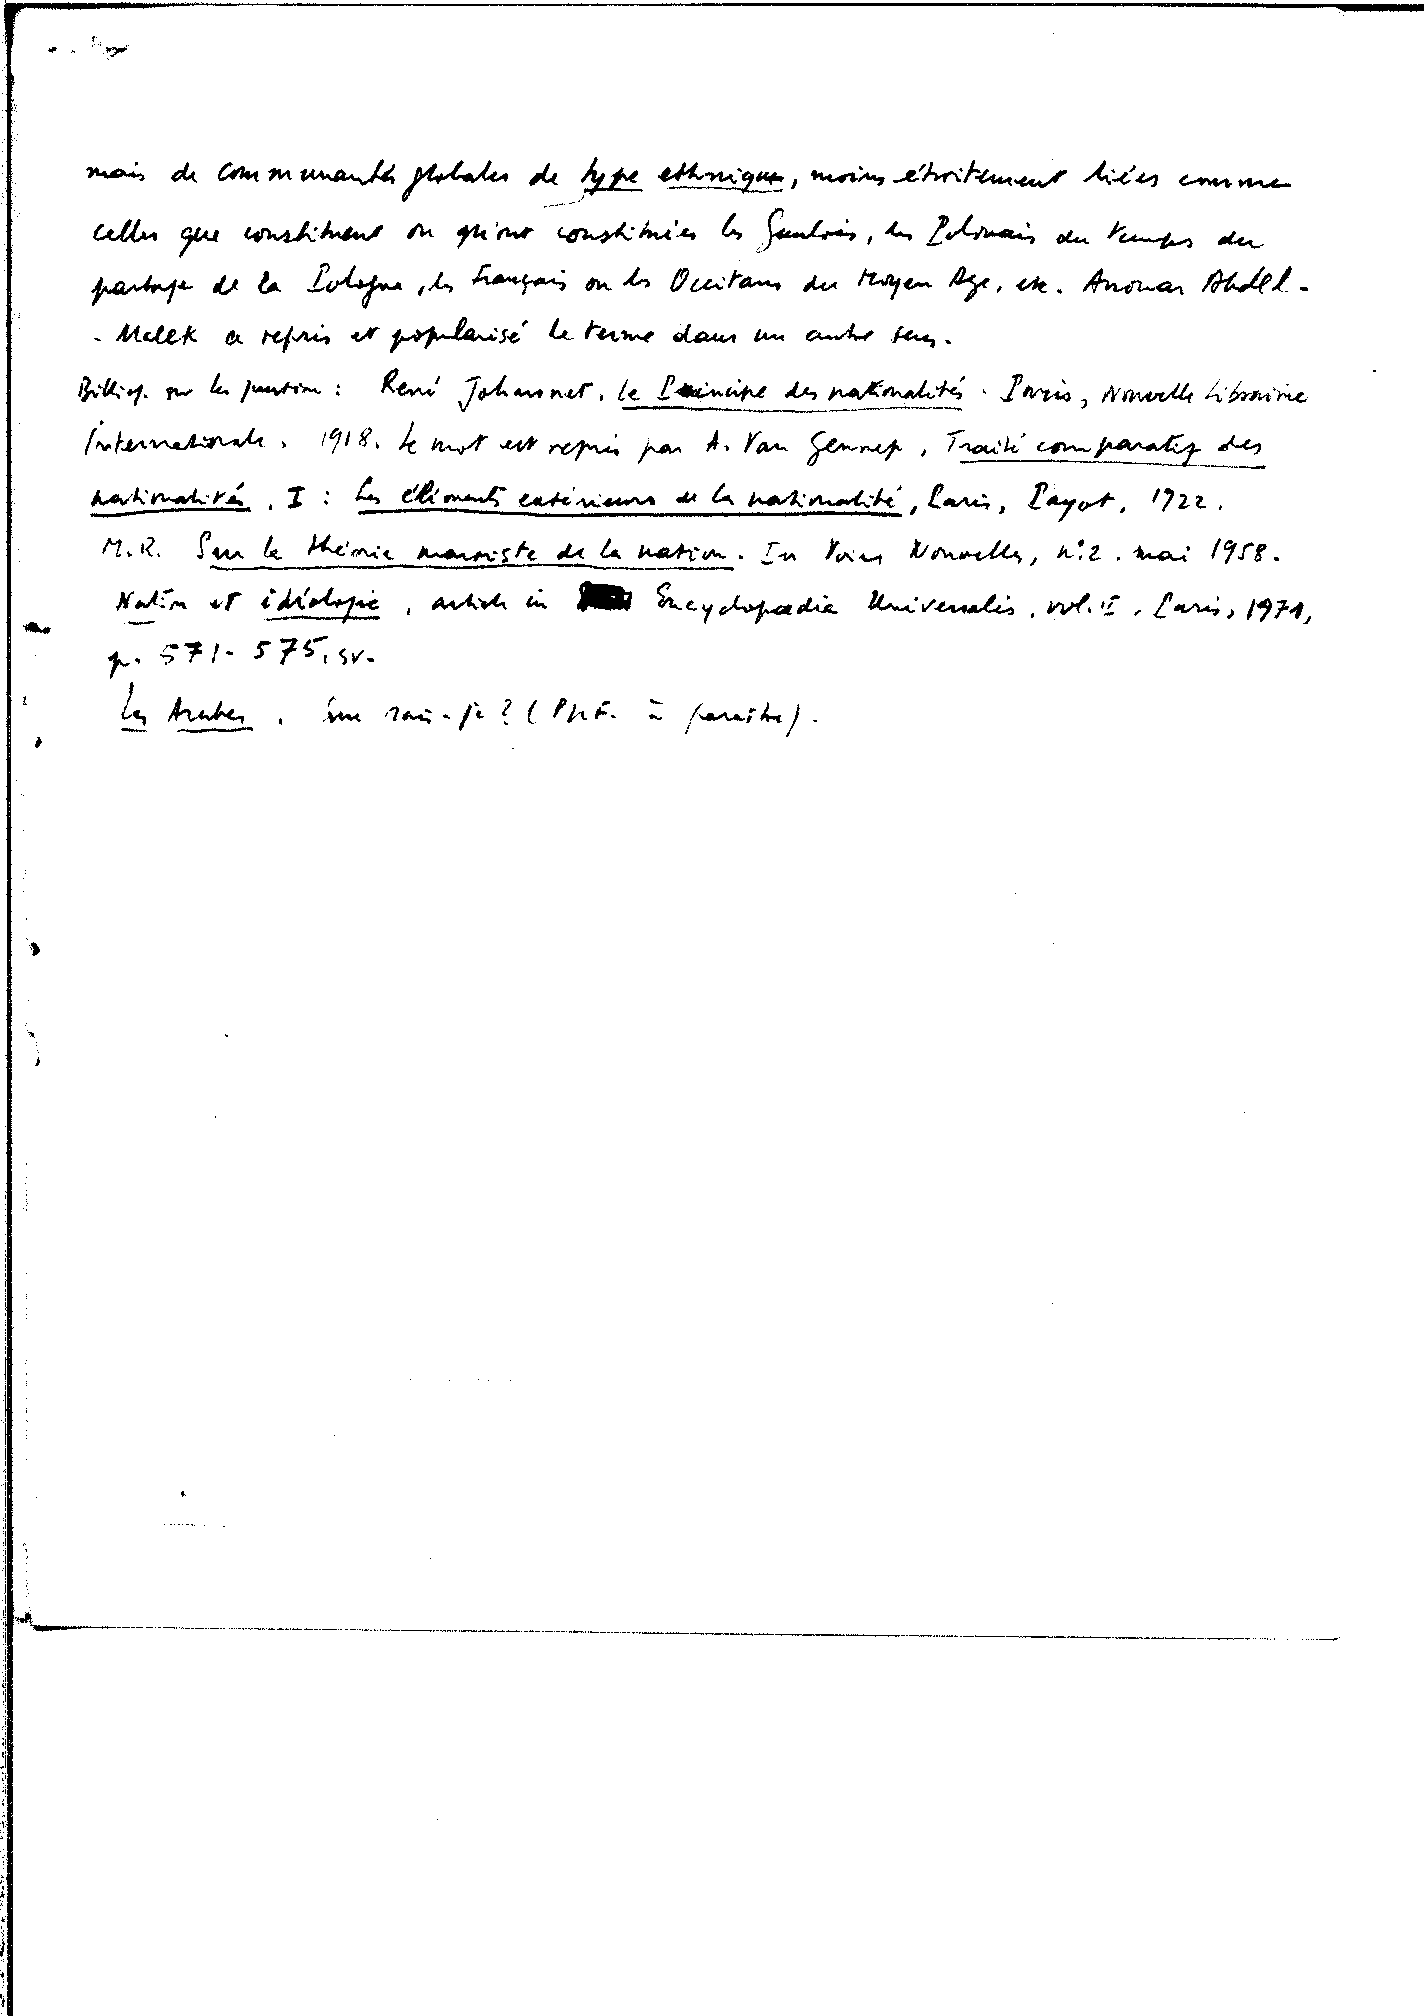 mais de communautés globales de type ethnique, moins étroitement liées comme
celles que constituent ou qu'ont constituées les Gaulois, les Polonais du temps du
partage de la Pologne, les Français ou les Occitans du Moyen Age, etc. Anouar Abdel-
-Malek a repris et popularisé le terme dans un autre sens.
Bibliog. sur la question : René Johannet, Le Principe des nationalités. Paris, Nouvelle Librairie
Internationale, 1918. Le mot est repris par A. Van Gennep, Traité comparatif des
nationalités, I : Les éléments extérieurs de la nationalité, Paris, Payot, 1922.
M.R. Sur la théorie marxiste de la nation. In Voies Nouvelles, n°2. mai 1958.
Nation et idéologie, article in Encyclopædia Universalis, vol. II, Paris, 1971,
p. 571-575, sv.
Les Arabes. Que sais-je? (PUF. à paraître).